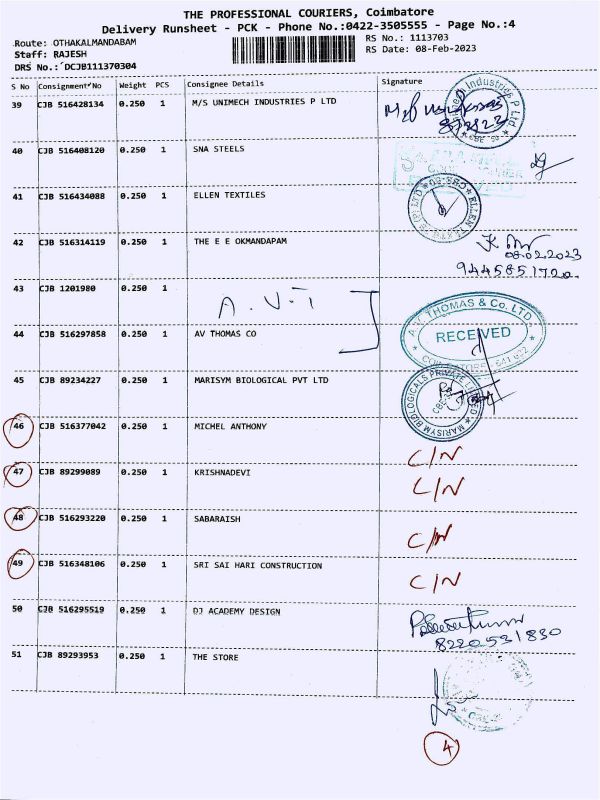 THE PROFESSIONAL COURIERS, Coimbatore
Delivery Runsheet - PCK - Phone No.:0422-3505555 - Page No.:4
Route: OTHAKALMANDABAM
RS No.: 1113703
Staff: RAJESH
RS Date: 08-Feb-2023
DRS No.: DCJB111370304
S No Consignment No Weight PCS Consignee Details Signature
39 CJB 516428134 0.250 1 M/S UNIMECH INDUSTRIES P LTD
40 CJB 516408120 0.250 1 SNA STEELS
41 CJB 516434088 0.250 1 ELLEN TEXTILES
42 CJB 516314119 0.250 1 THE E E OKMANDAPAM
08.02.2023
9445851720
43 CJB 1201980 0.250 1 A.V.T
44 CJB 516297858 0.250 1 AV THOMAS CO
A.V. THOMAS & Co. LTD.
RECEIVED
45 CJB 89234227 0.250 1 MARISYM BIOLOGICAL PVT LTD
MARISYM BIOLOGICALS PRIVATE LIMITED
46 CJB 516377042 0.250 1 MICHEL ANTHONY C/N
47 CJB 89299089 0.250 1 KRISHNADEVI C/N
48 CJB 516293220 0.250 1 SABARAISH C/N
49 CJB 516348106 0.250 1 SRI SAI HARI CONSTRUCTION C/N
50 CJB 516295519 0.250 1 DJ ACADEMY DESIGN
8220531830
51 CJB 89293953 0.250 1 THE STORE
4